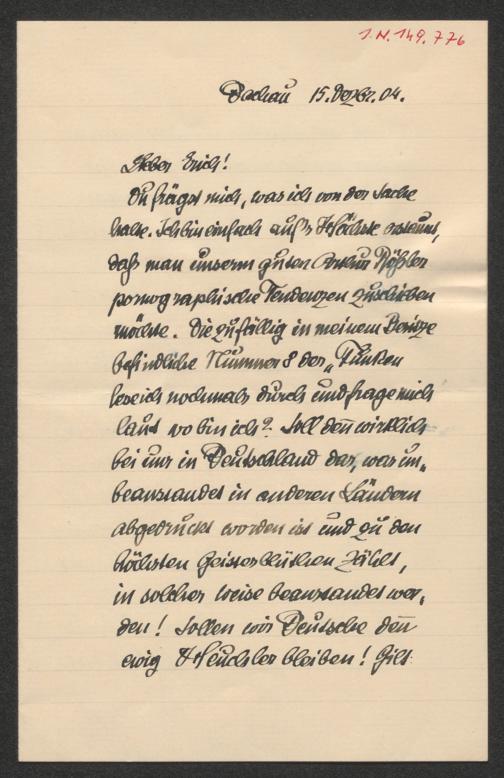 I.N. 149.776
Dachau 15. Dezbr. 04.
Lieber Erich!
Du frägst mich, was ich von der Sache
halte. Ich bin einfach auf's Höchste erstaunt,
daß man unserm guten Arthur Rößler
pornographische Tendenzen zuschieben
möchte. Die zufällig in meinem Besitze
befindliche Nummer 8 der „Funken
lese ich nochmals durch und frage mich
laut wo bin ich? Soll deñ wirklich
bei uns in Deutschland das, was un„
beanstandet in anderen Ländern
abgedruckt worden ist und zu den
höchsten Geistesblüthen zählt,
in solcher Weise beanstandet wer„
den! Sollen wir Deutsche deñ
ewig Heuchler bleiben! Gilt